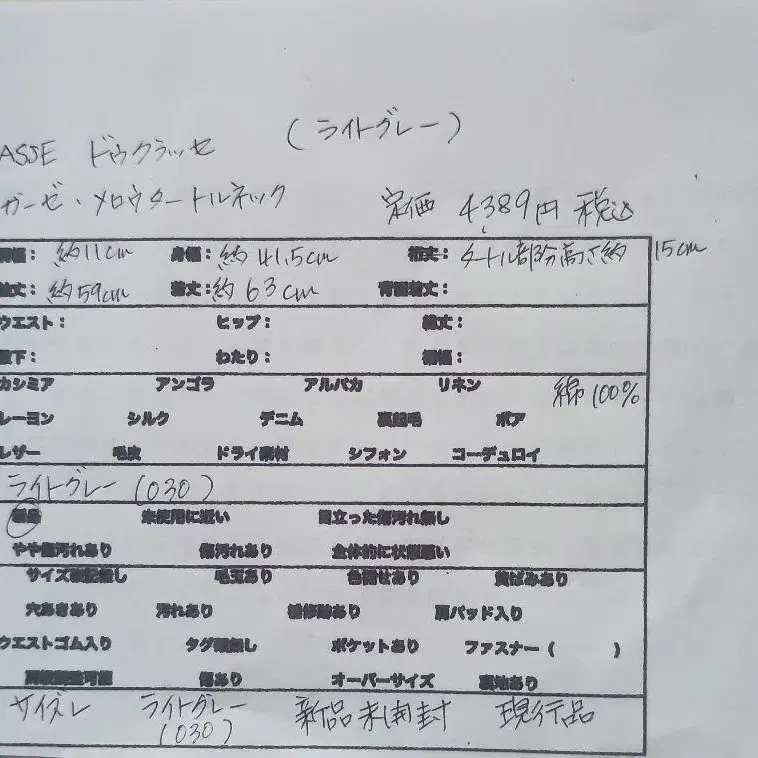 (ライトグレー)
ASSE ドゥクラッセ
ガーゼ・メロウタートルネック 定価 4,389円 税込
幅: 約11cm 身幅: 約41.5cm 裄丈: タートル部分高さ約15cm
丈: 約59cm 着丈: 約63cm 背面着丈:
ウエスト: ヒップ: 総丈:
股下: わたり: 裾幅:
カシミア アンゴラ アルパカ リネン 綿100%
レーヨン シルク デニム 裏起毛 ボア
レザー 毛皮 ドライ素材 シフォン コーデュロイ
ライトグレー(030)
新品 未使用に近い 目立った傷汚れ無し
やや傷汚れあり 傷汚れあり 全体的に状態悪い
サイズ表記無し 毛玉あり 色褪せあり 黄ばみあり
穴あきあり 汚れあり 補修跡あり 肩パッド入り
ウエストゴム入り タグ無し ポケットあり ファスナー( )
傷あり オーバーサイズ 裏地あり
サイズL ライトグレー(030) 新品未開封 現行品